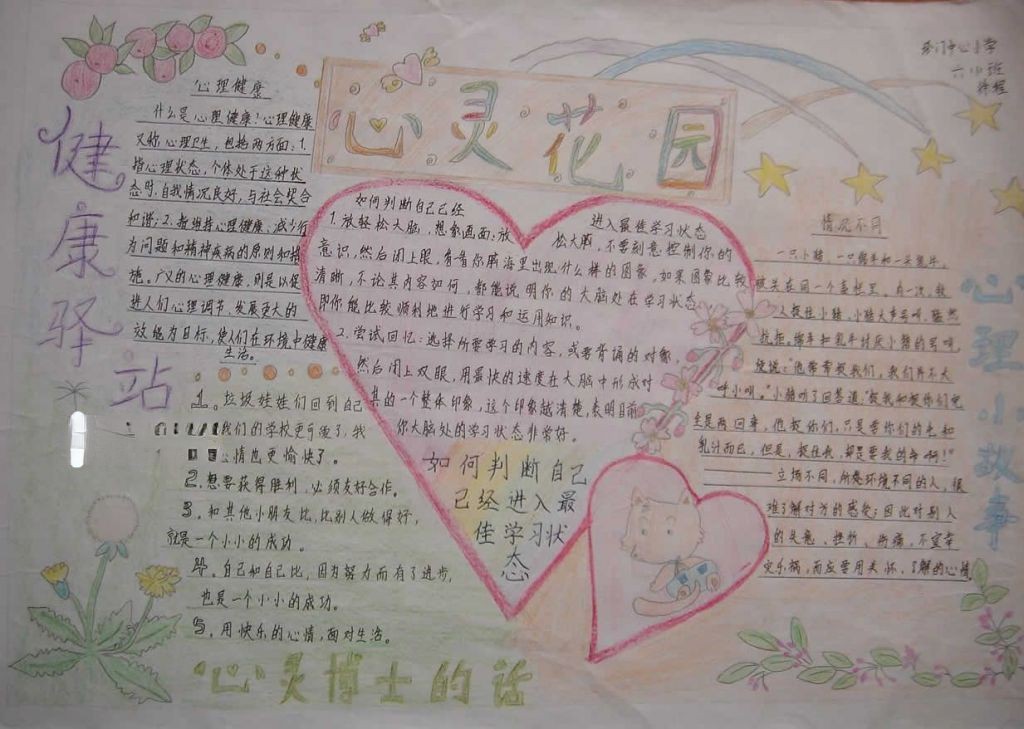 心灵花园
六(1)班
健康驿站
心理健康
什么是心理健康?心理健康
又称心理卫生,包括两方面:1.
指心理状态,个体处于这种状
态时,自我情况良好,与社会契合
和谐;2.指维持心理健康、减少行
为问题和精神疾病的原则和措
施。广义的心理健康,则是以促
进人们心理调节、发展更大的
效能为目标,使人们在环境中健康
生活。
1。垃圾娃娃们回到自己
我们的学校更可爱了,我
心情也更愉快了。
2.想要获得胜利,必须友好合作。
3。和其他小朋友比,比别人做得好,
就是一个小小的成功。
4。自己和自己比,因为努力而有了进步,
也是一个小小的成功。
5。用快乐的心情,面对生活。
心灵博士的话
如何判断自己已经
进入最佳学习状态
1.放轻松大脑,想象画面:放
松大脑,不要刻意控制你的
意识,然后闭上眼,看看你脑海里出现什么样的图象,如果图象比较
清晰,不论其内容如何,都能说明你的大脑处在学习状态
即你能比较顺利地进行学习和运用知识。
2.尝试回忆:选择所要学习的内容,或要背诵的对象,
然后闭上双眼,用最快的速度在大脑中形成对
其的一个整体印象,这个印象越清楚,表明目前
你大脑处的学习状态非常好。
如何判断自己
已经进入最
佳学习状
态
心理小故事
情况不同
一只小猪、一只绵羊和一头乳牛,
被关在同一个畜栏里。有一次,牧
人捉住小猪,小猪大声号叫,猛烈
抗拒。绵羊和乳牛讨厌小猪的号叫,
便说:"他常常捉我们,我们并不大
呼小叫。"小猪听了回答道:"捉我和捉你们完
全是两回事,他捉你们,只是要你们的毛和
乳汁而已,但是,捉住我,却是要我的命啊!"
立场不同,所处环境不同的人,很
难了解对方的感受;因此对别人
的失意、挫折、伤痛,不宜幸
灾乐祸,而应要用关怀、了解的心情